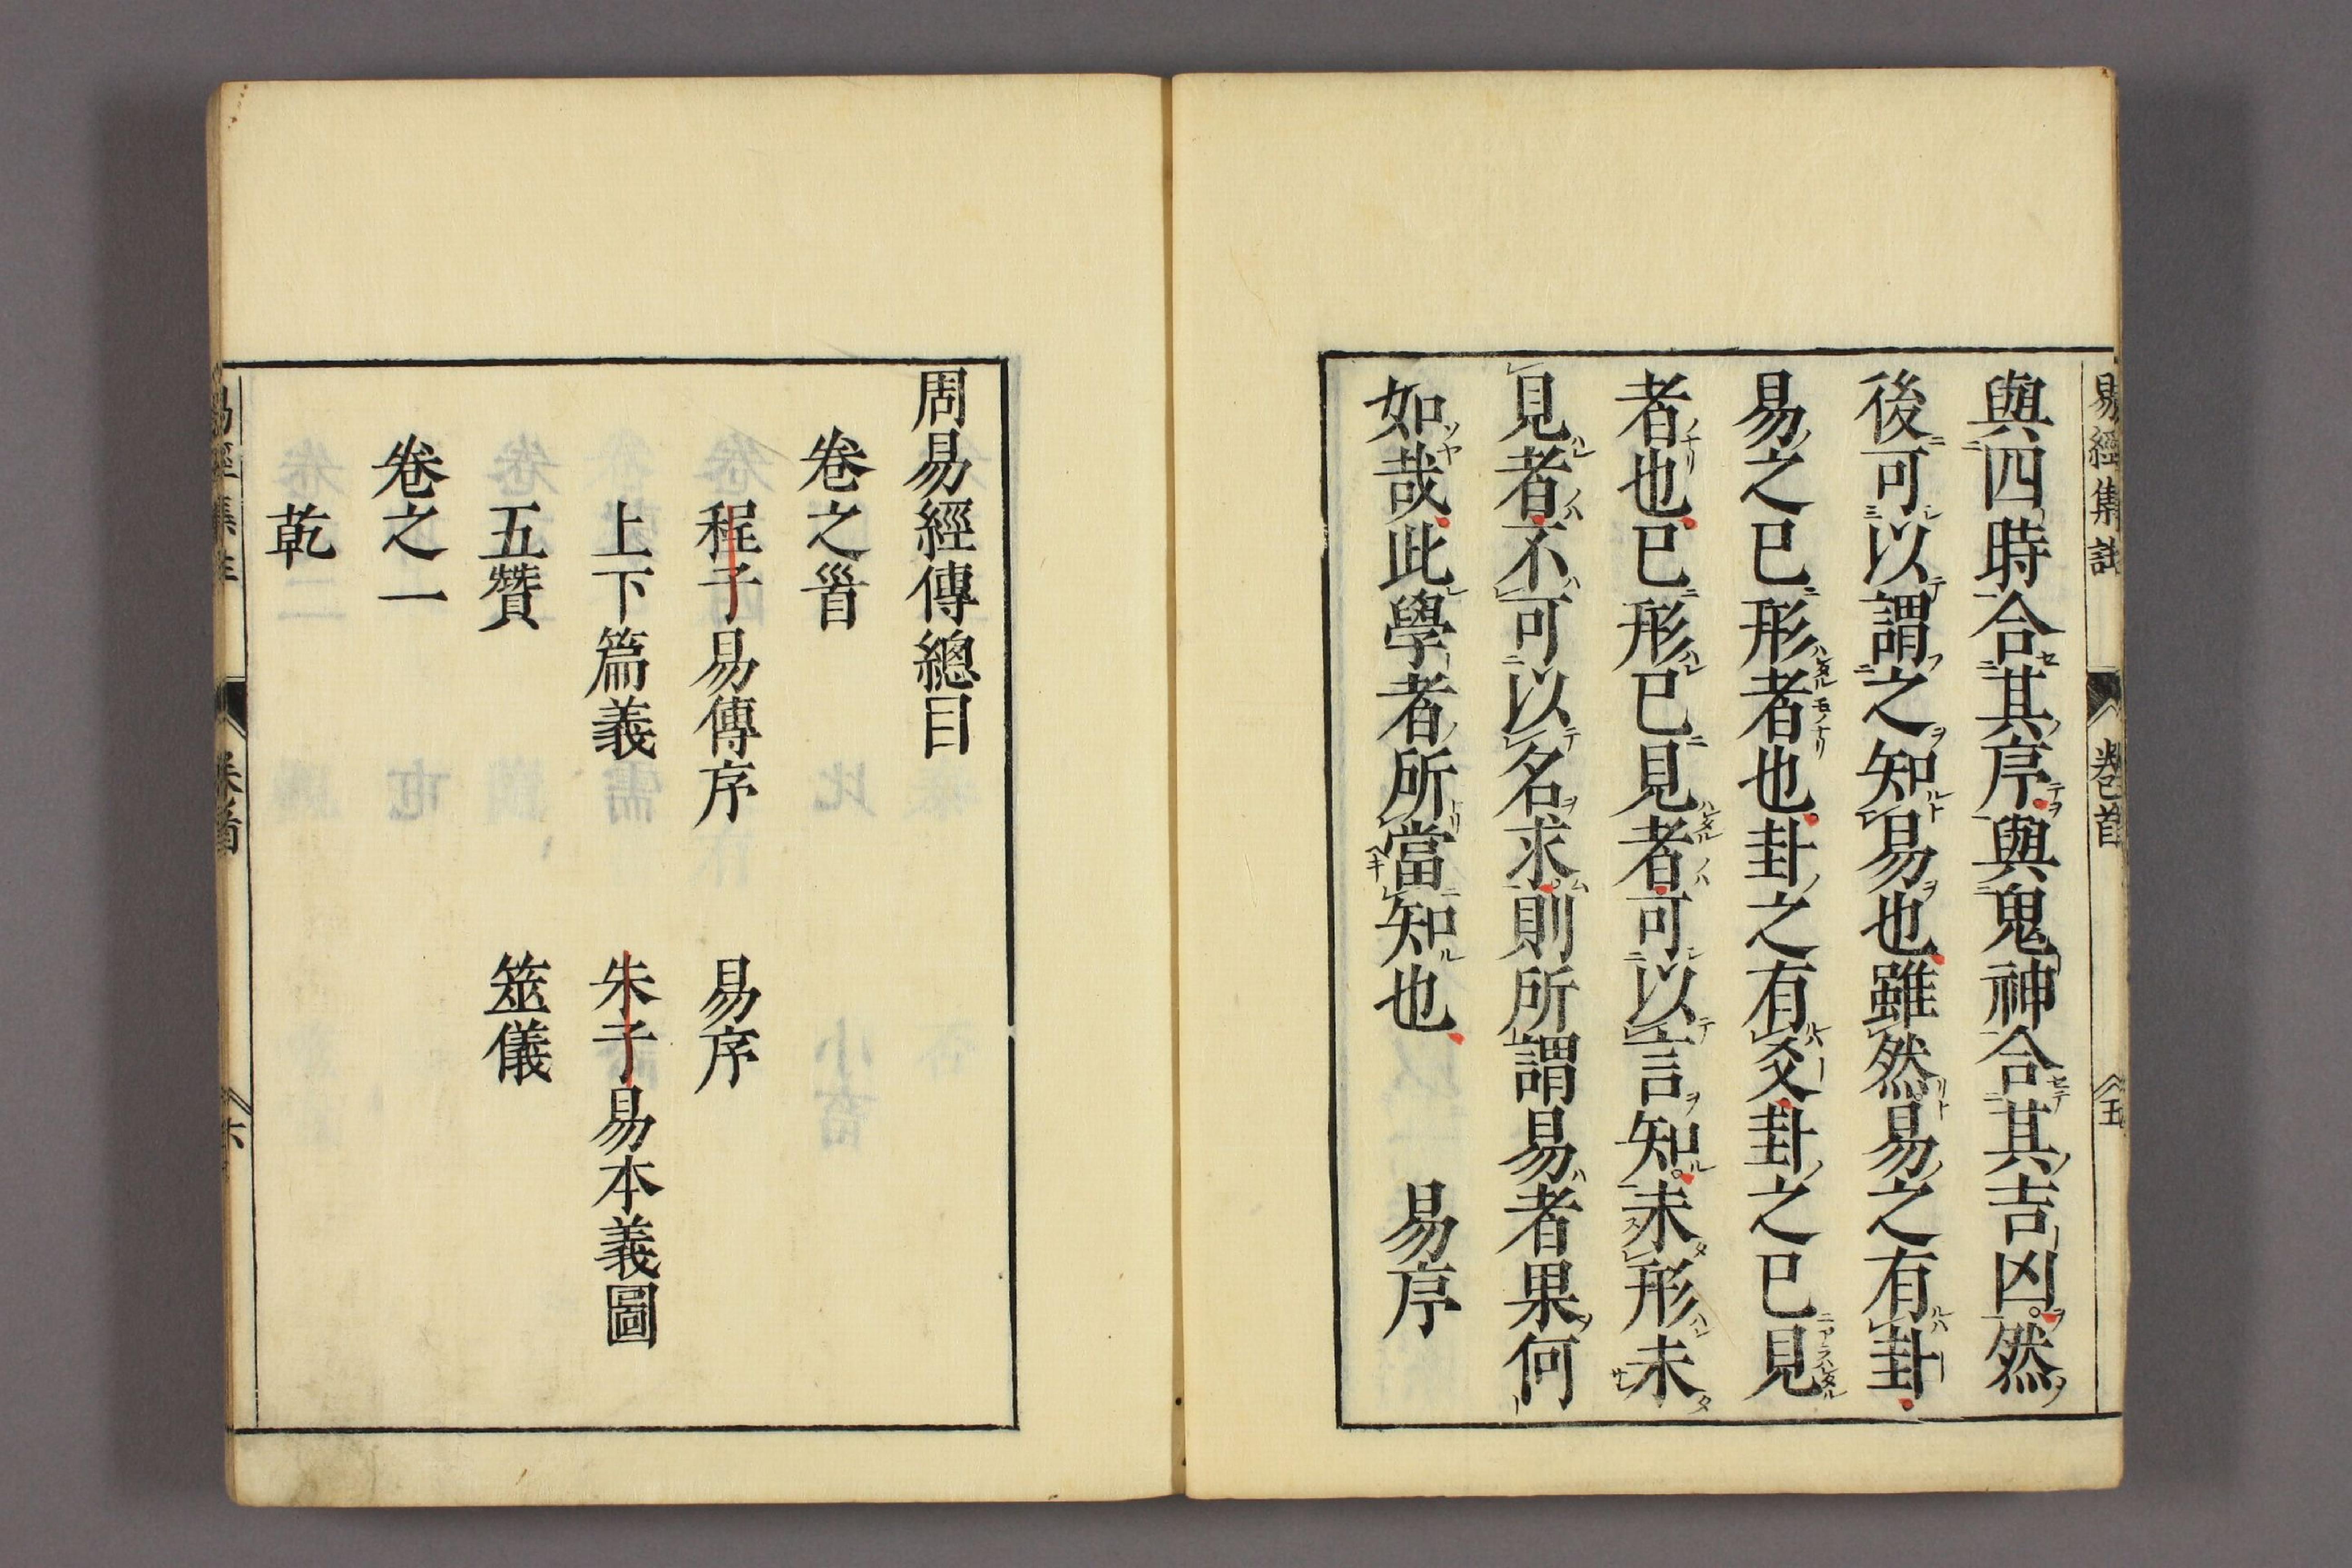 易經集註 卷首 五
與四時合其序與鬼神合其吉凶然
後可以謂之知易也雖然易之有卦
易之已形者也卦之有爻卦之已見
者也已形已見者可以言知未形未
見者不可以名求則所謂易者果何
如哉此學者所當知也 易序
周易經傳總目
卷之首
程子易傳序 易序
上下篇義 朱子易本義圖
五贊 筮儀
卷之一
乾
易經集註 卷首 六